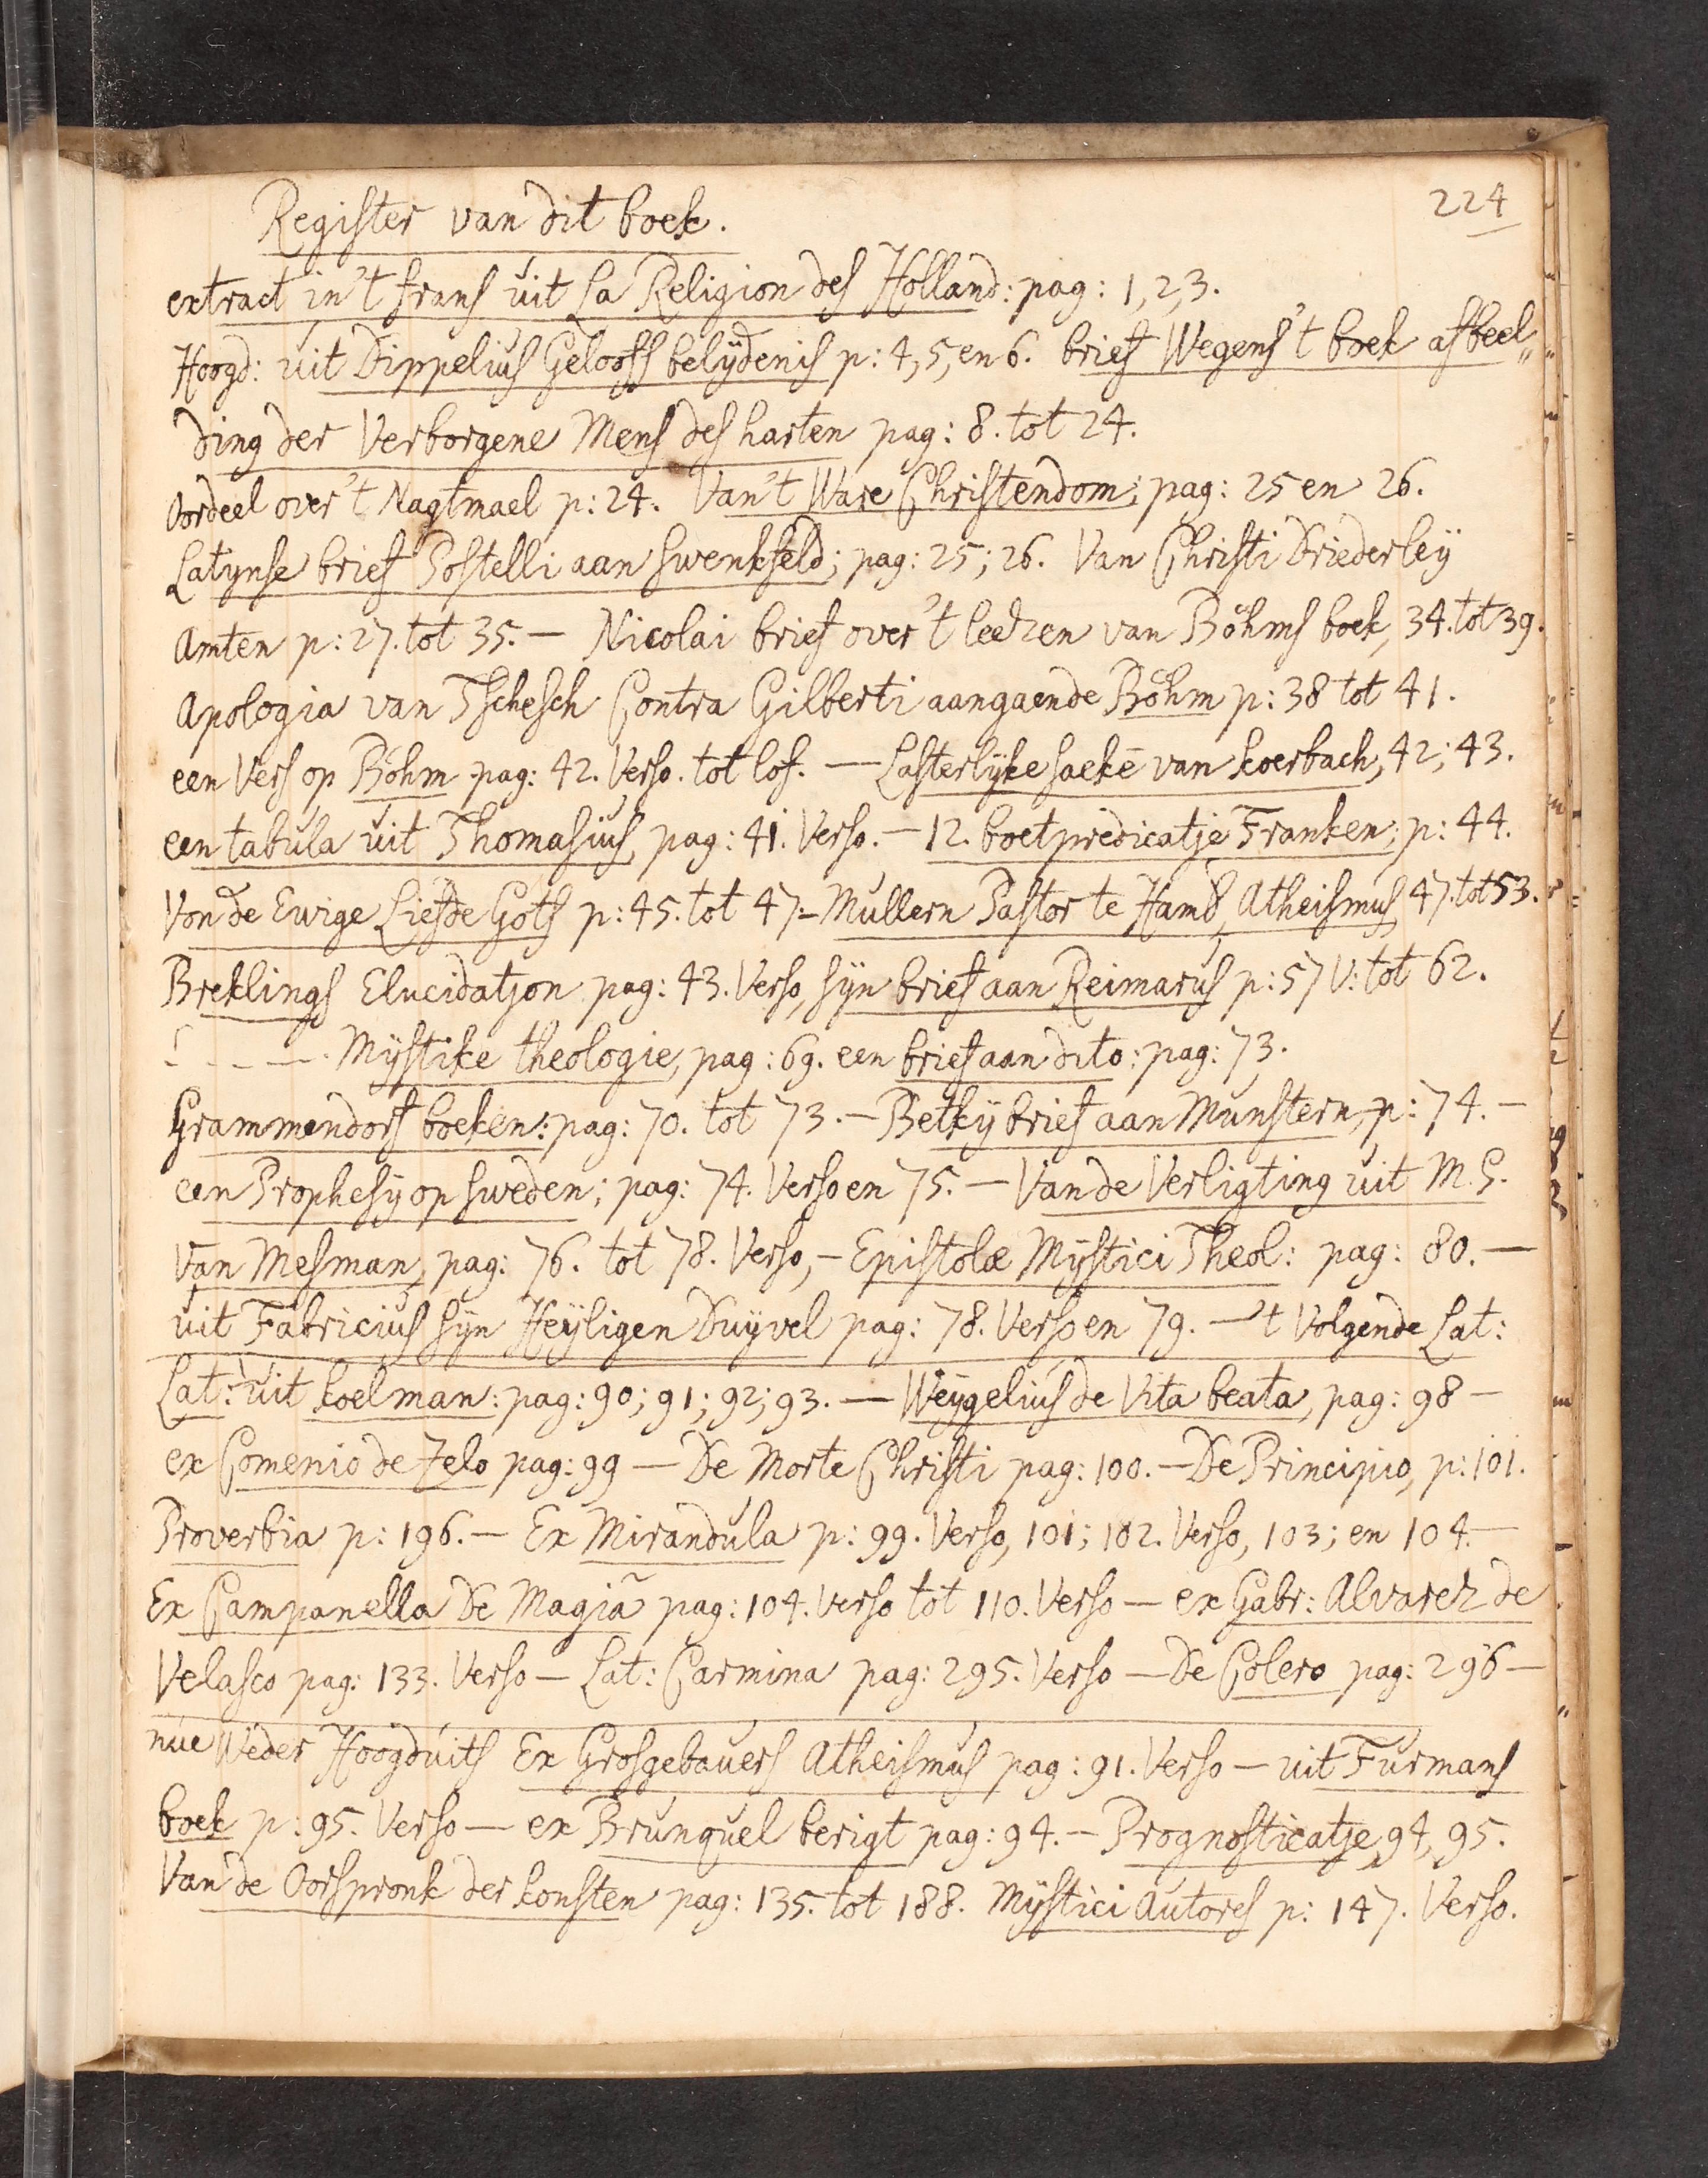 224
Register van dit boek.
extract in 't frans uit La Religion des Holland: pag: 1, 2, 3.
Hoogd: uit Dippelius Geloofs belÿdenis p: 4, 5, en 6. brief Wegens 't boek afbeel„
ding der Verborgene Mens des harten pag: 8. tot 24.
Oordeel over 't Nagtmael p: 24. Van 't Ware Christendom; pag: 25 en 26.
Latynse brief Postelli aan Swenkfeld; pag: 25; 26. Van Christi Driederleÿ
Amten p: 27. tot 35. — Nicolai brief over 't leezen van Böhms boek, 34. tot 39.
Apologia van Tschesch Contra Gilberti aangaende Böhm p: 38 tot 41.
een Vers op Böhm pag: 42. Verso. tot lof. — Lasterlÿke saekē van koerbach, 42; 43.
een tabula uit Thomasius, pag: 41. Verso. — 12. boetpredicatje Franken; p: 44.
Von de Ewige Liefde Gots p: 45. tot 47. — Mullern Pastor te Hamb, Atheismus, 47. tot 53.
Breklings Elucidatjon pag: 43. Verso, sÿn brief aan Reimarus p: 57 V: tot 62.
- - - — Mÿstike theologie, pag: 69. een brief aan dito: pag: 73.
Grammendorf boeken: pag: 70. tot 73. — Betkÿ brief aan Munstern, p: 74. —
een Prophesÿ op Sweden; pag: 74. Verso en 75. — Van de Verligting uit M.S.
Van Mesman, pag: 76. tot 78. Verso, — Epistolæ Mÿstici Theol: pag: 80. —
uit Fabricius sÿn Heÿligen Duÿvel pag: 78. Verso en 79. — 't Volgende Lat:
Lat: uit koelman: pag: 90; 91; 92; 93. — Weÿgelius de Vita beata, pag: 98 —
ex Comenio de Zelo pag: 99 — De Morte Christi pag: 100. — De Principio, p: 101.
Proverbia p: 196. — Ex Mirandula p: 99. Verso, 101; 102. Verso, 103; en 104. —
Ex Campanella De Magiã pag: 104. Verso tot 110. Verso — ex Gabr: Alvarez de
Velasco pag: 133. Verso — Lat: Carmina pag: 295. Verso — De Colero pag: 296 —
nue Weder Hoogduits Ex Grosgebauers Atheismus pag: 91. Verso — uit Furmans
boek p: 95. Verso — ex Brunquel berigt pag: 94. — Prognosticatje, 94, 95.
Van de Oorspronk der konsten pag: 135. tot 188. Mÿstici Autores p: 147. Verso.